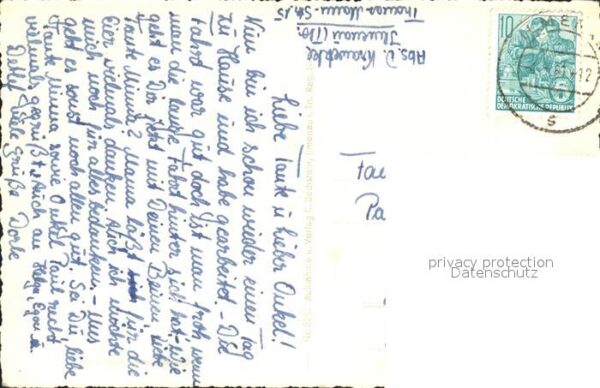 Liebe Tante u. lieber Onkel!
Nun bin ich schon wieder einen Tag
zu Hause und habe gearbeitet. - Die
Fahrt war gut doch ist man froh wenn
man die lange Fahrt hinter sich hat. Wie
geht es Dir jetzt mit Deinen Beinen liebe
Tante Minna? Mama läßt für die
Eier vielmals danken. Auch ich möchte
mich noch für alles bedanken. - Uns
geht es sonst noch allen gut. Sei Du, liebe
Tante Minna sowie Onkel Paul recht
vielmals gegrüßt. Auch an Helga, Egon u.
Detlef viele Grüße Dorle
Abs. D.
Thomas-Mann-Str. 15
Ilmenau (Th.)
10
DEUTSCHE
DEMOKRATISCHE REPUBLIK
Fam
Pa
privacy protection
Datenschutz